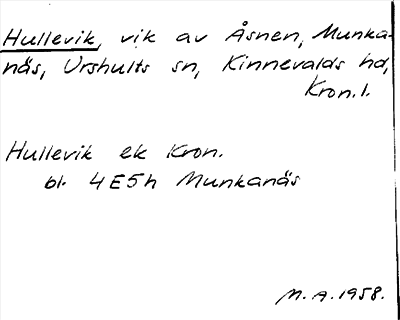 Hullevik, vik av Åsnen, Munka-
näs, Urshults sn, Kinnevalds hd,
Kron. l.
Hullevik ek Kron.
bl. 4E5h Munkanäs
M.A. 1958.